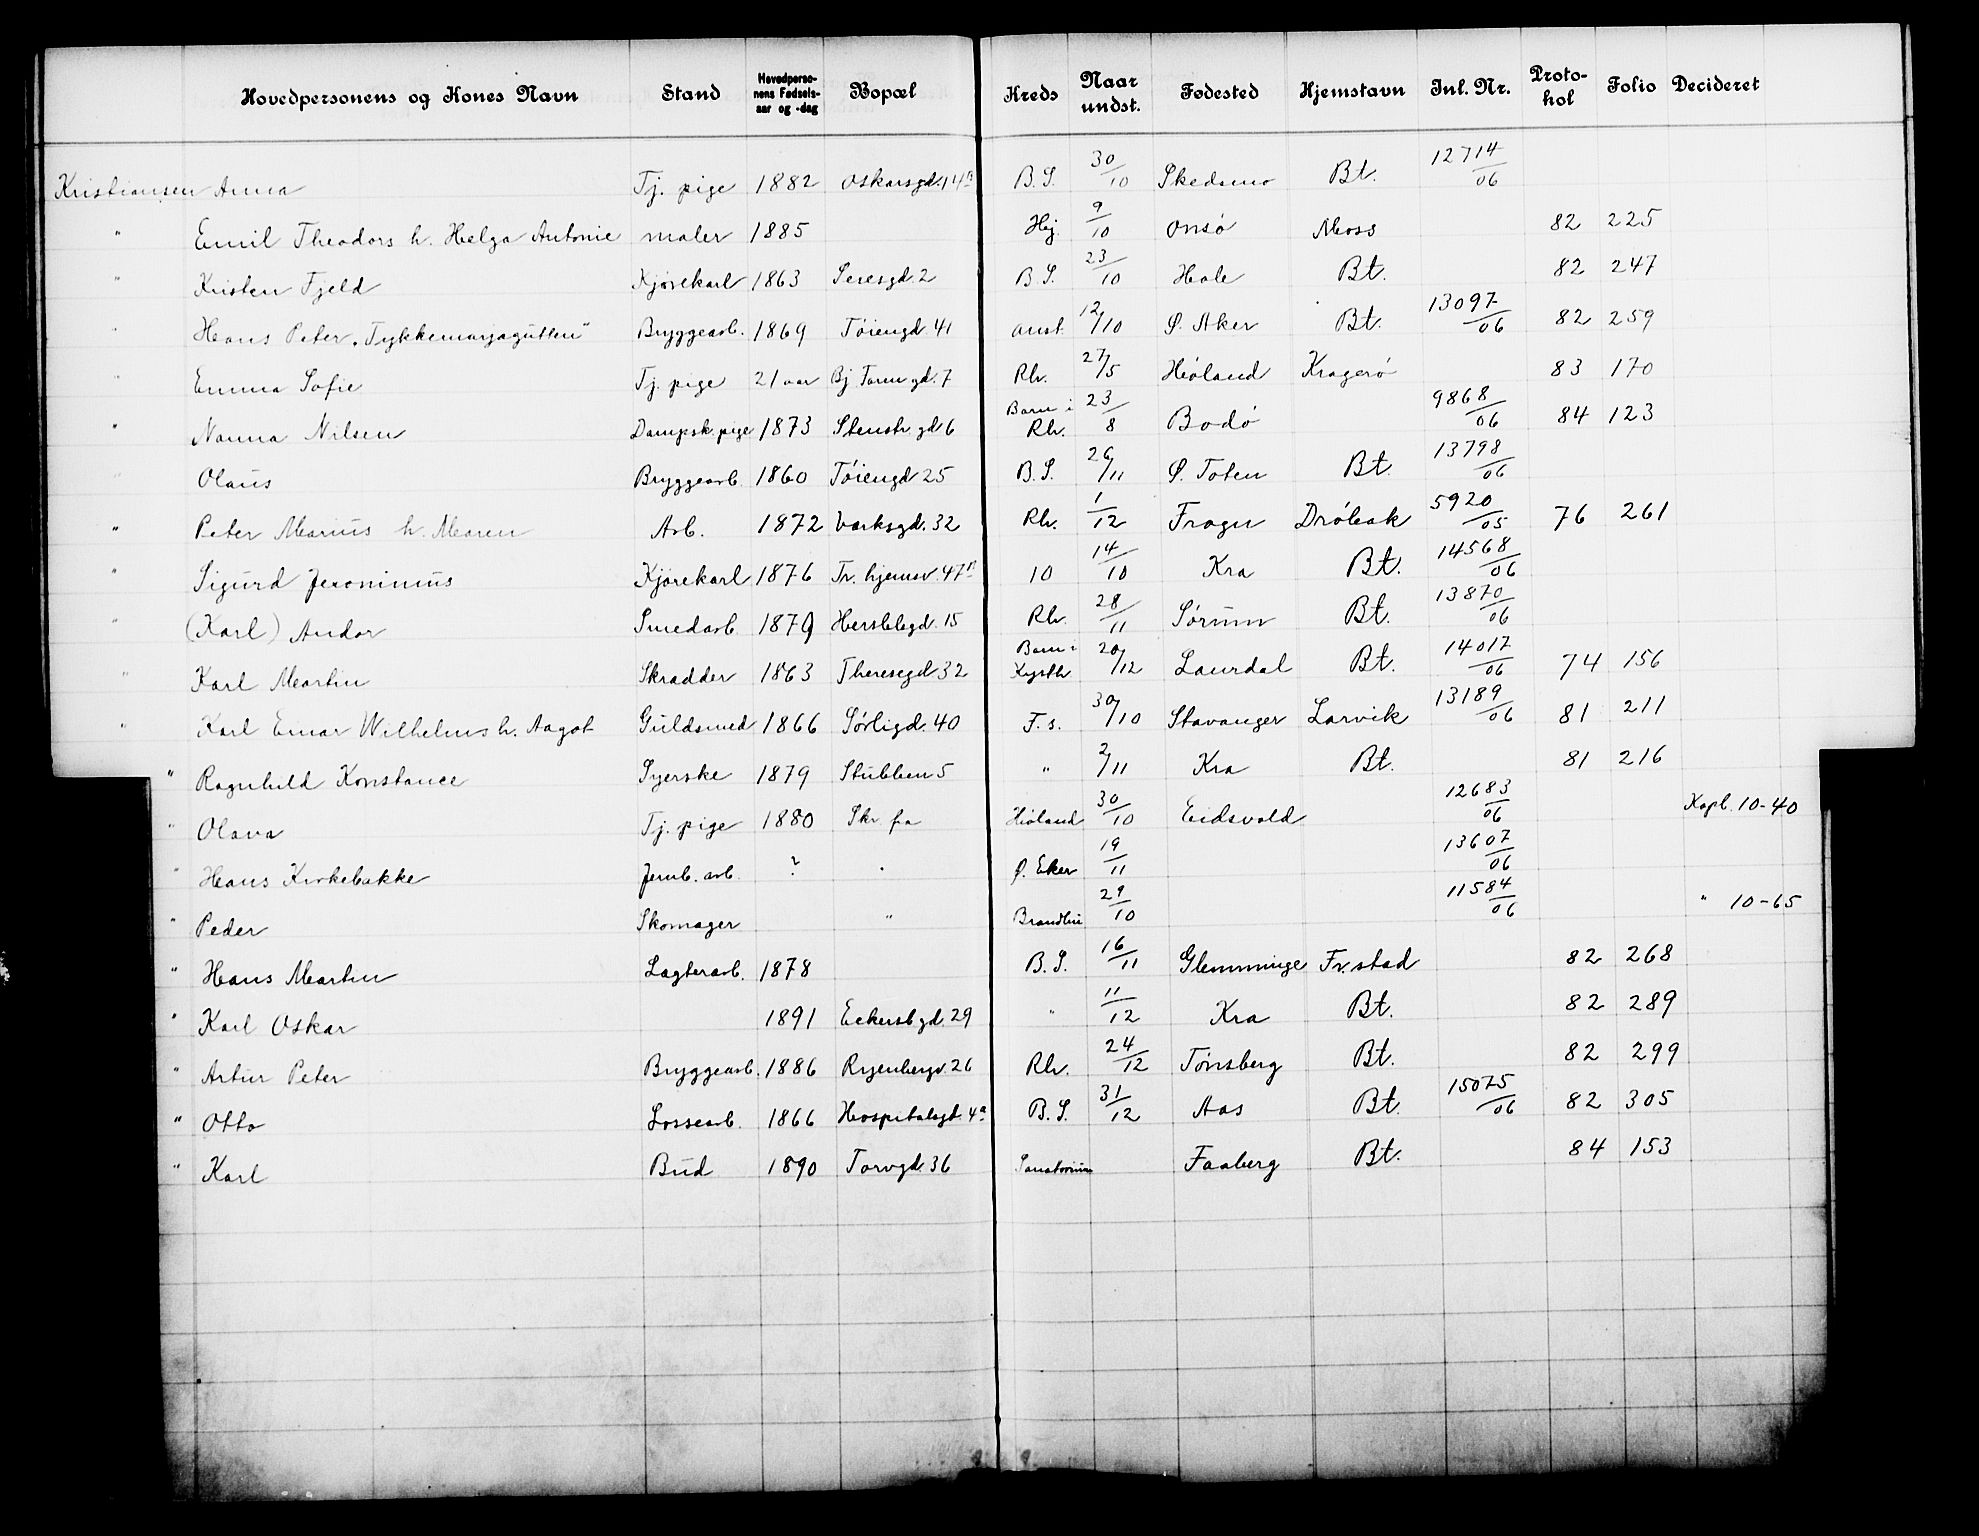 Hovedpersonens og Kones Navn Stand Hovedpersonens Fødselsaar og -dag Bopæl Kreds Naar undst. Fødested Hjemstavn Inl. Nr. Protokol Folio Decideret
Kristiansen Anna Tj. pige 1882 Oskarsgd. 14 B. S. 30/10 Skedsmo Bt. 12714/06
" Emil Theodors h. Helga Antonie maler 1885 Hej. 9/10 Onsö Moss 82 225
" Kristen Fjeld Kjörekarl 1863 Seresgd. 2 B. S. 23/10 Hole Bt. 82 247
" Hans Peter „Tykkemarjagutten" Bryggearb. 1869 Töiengd. 41 anst. 12/10 Ø. Aker Bt. 13097/06 82 259
" Emma Sofie Tj. pige 21 aar Bj. Farm gd. 7 Rh. 27/5 Höland Kragerö 83 170
" Nanna Nilsen Dampsk. pige 1873 Stenstr. gd 6 Barn i Rh. 23/8 Bodö 9868/06 84 123
" Olaus Bryggearb. 1860 Töiengd. 25 B. S. 26/11 Ø. Toten Bt. 13798/06
" Peter Marius h. Maren Arb. 1872 Værksgd. 32 Rh. 1/12 Frogn Dröbak 5920/05 76 261
" Sigurd Jeronimus Kjörekarl 1876 Tr. hjemsv. 47 10 14/10 Kra Bt. 14568/06
" (Karl) Andor Smedarb. 1879 Herslebgd. 15 Rh. 28/11 Sörum Bt. 13870/06
" Karl Martin Skrædder 1863 Theresegd 32 Barn i 20/12 Laurdal Bt. 14017/06 74 156
" Karl Einar Wilhelms h. Aagot Guldsmed 1866 Sörligd. 40 F. s. 30/10 Stavanger Larvik 13189/06 81 211
" Ragnhild Konstance Syerske 1879 Stubben 5 " 2/11 Kra Bt. 81 216
" Olava Tj. pige 1880 Skr. fra Höland 30/10 Eidsvold 12683/06 Kopb. 10-40
" Hans Kirkebakke Jernb. arb. ? " Ø. Eker 19/11 13607/06
" Peder Skomager " Brandbu 29/10 11584/06 " 10-65
" Hans Martin Lagterarb. 1878 B. S. 16/11 Glemminge Fr.stad 82 268
" Karl Oskar 1891 Eckersbgd. 29 " 11/12 Kra Bt. 82 289
" Artur Peter Bryggearb. 1886 Ryenbergv. 26 Rh. 24/12 Tönsberg Bt. 82 299
" Otto Lossearb. 1866 Hospitalsgt. 4a B. S. 31/12 Aas Bt. 15075/06 82 305
" Karl Bud 1890 Torvgd. 36 Sanatorium Faaberg Bt. 84 153